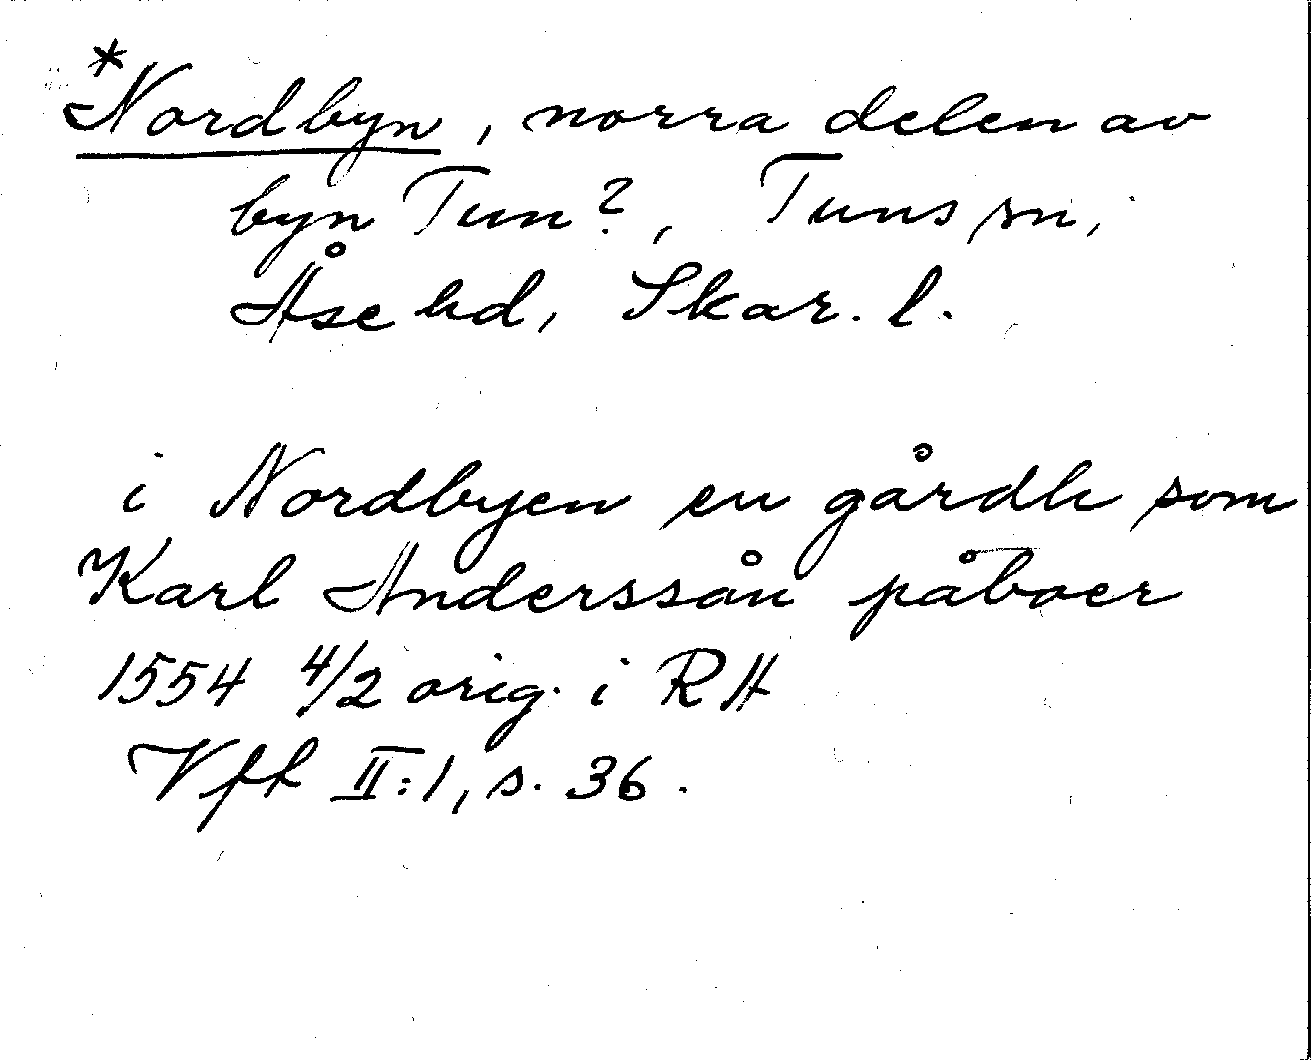 *Nordbyn, norra delen av
byn Tun?, Tuns sn,
Åse hd, Skar. l.
i Nordbyen en gårdh som
Karl Anderssån påboer
1554 4/2 orig. i RH
Vfh II:1, s. 36.